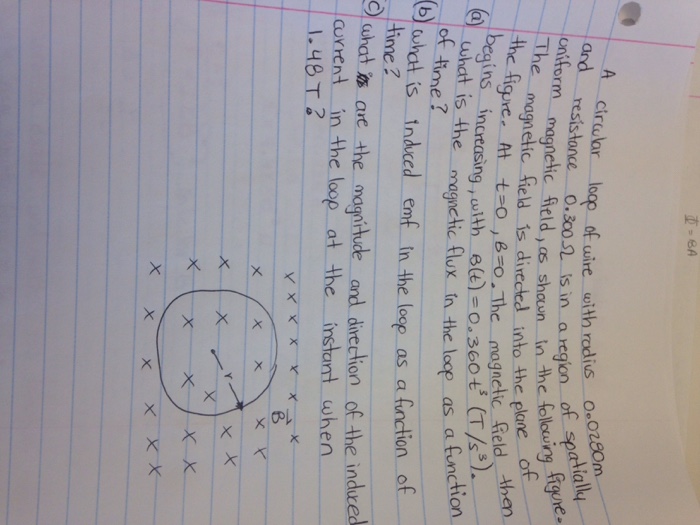 Φ = BA
A circular loop of wire with radius 0.0280m
and resistance 0.300Ω is in a region of spatially
uniform magnetic field, as shown in the following figure.
The magnetic field is directed into the plane of
the figure. At t=0, B=0. The magnetic field then
begins increasing, with B(t) = 0.360t³ (T/s³).
(a) what is the magnetic flux in the loop as a function
of time?
(b) what is induced emf in the loop as a function of
time?
(c) what are the magnitude and direction of the induced
current in the loop at the instant when
1.48 T?
x x x x x x x
B
x x x x x
x x x x x
r
x x x x
x x x x x